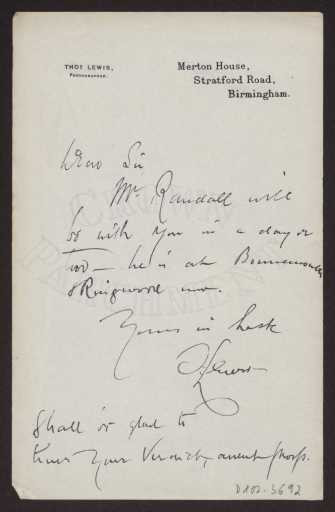 THOS LEWIS,
PHOTOGRAPHER.
Merton House,
Stratford Road,
Birmingham.
Dear Sir
Mr. Randall will
be with you in a day or
two - he is at Bournemouth
& Ringwood now.
Yours in haste
T Lewis
Shall be glad to
have your verdict, anent photos.
D102-3692